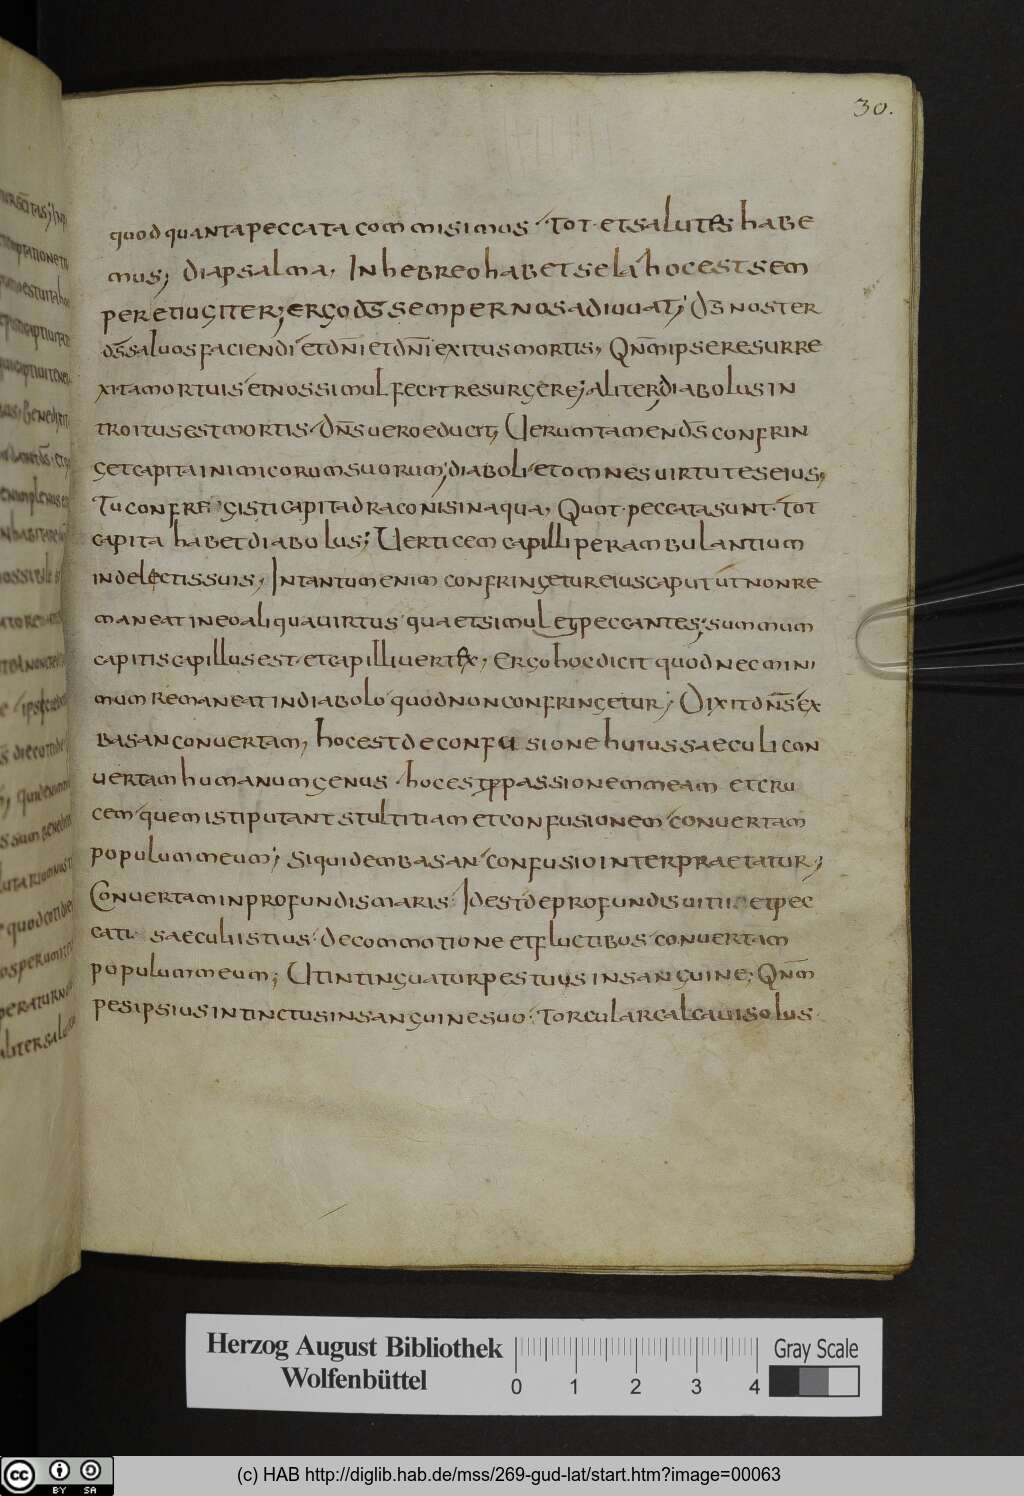 30.
quod quanta peccata commisimus · tot · et salutes habe
mus; diapsalma, In hebreo habet sela hoc est sem
per et iugiter; ergo d̄s semper nos adiuuat; D̄s noster
d̄s saluos faciendi et dn̄i et dn̄i exitus mortis, Qn̄m ipse resurre
xit a mortuis et nos simul fecit resurgere; aliter, diabolus in
troitus est mortis · dn̄s uero educit, Uerumtamen d̄s confrin
get capita inimicorum suorum; diaboli et omnes uirtutes eius,
Tu confregisti capita draconis in aqua, Quot · peccata sunt · tot
capita habet diabolus; Uerticem capilli perambulantium
in delectis suis, In tantum enim confringetur eius caput ut non re
maneat in eo aliqua uirtus qua et simul et peccantes; summum
capitis capillus est · et capilli uertex; Ergo hoc dicit quod nec mini
mum remaneat in diabolo quod non confringetur; Dixit dn̄s ex
basan conuertam, hoc est de confusione huius saeculi con
uertam humanum genus · hoc est p̱ passionem meam et cru
cem quem isti putant stultitiam et confusionem conuertam
populum meum; siquidem basan confusio interpraetatur;
Conuertam in profundis maris · Id est de profundis uitii et pec
cati · saeculi istius · de commotione et fluctibus conuertam
populum meum; Ut intinguatur pes tuus in sanguine; Qn̄m
pes ipsius intinctus in sanguine suo · torcular calcaui solus
Herzog August Bibliothek
Wolfenbüttel
0 1 2 3 4
Gray Scale
cc BY SA
(c) HAB http://diglib.hab.de/mss/269-gud-lat/start.htm?image=00063